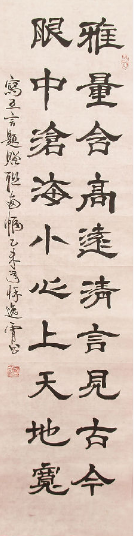 雅量含高遠清言見古今
眼中滄海小心上天地寬
寫五言題贈聯句幅乙未